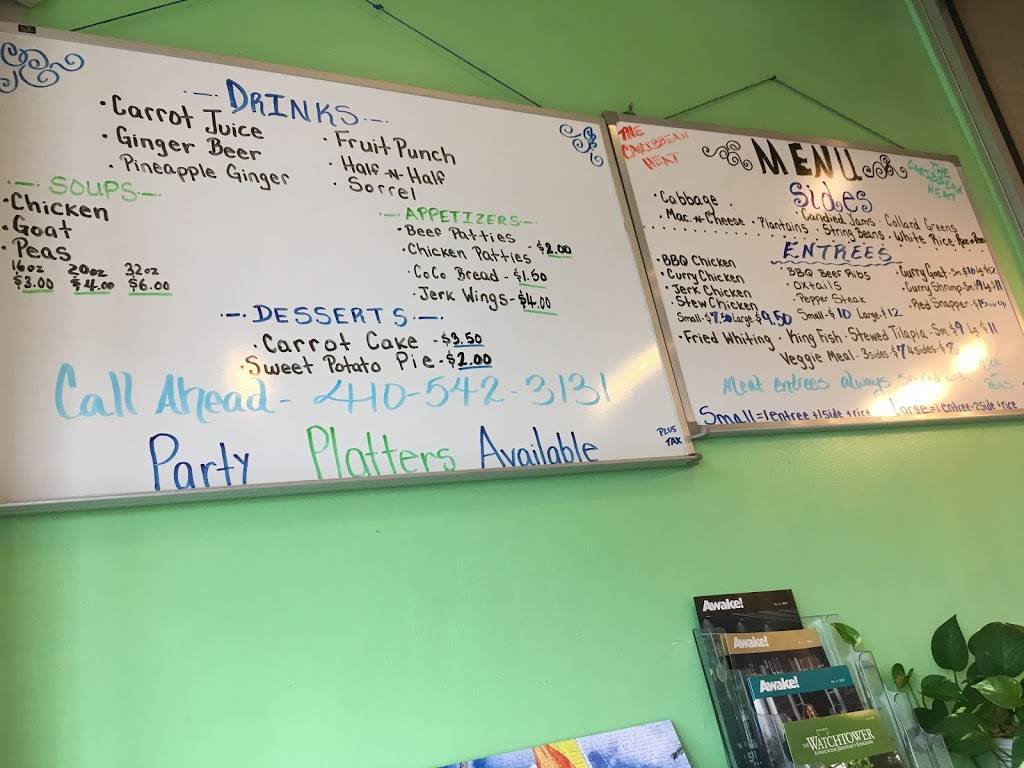 DRINKS
• Carrot Juice
• Ginger Beer
• Pineapple Ginger
• Fruit Punch
• Half-N-Half
• Sorrel
SOUPS
• Chicken
• Goat
• Peas
16oz 20oz 32oz
$3.00 $4.00 $6.00
APPETIZERS
• Beef Patties
• Chicken Patties - $2.00
• CoCo Bread - $1.50
• Jerk Wings - $4.00
DESSERTS
• Carrot Cake - $3.50
• Sweet Potato Pie - $2.00
Call Ahead - 410-542-3131
Party Platters Available
PLUS
TAX
THE
CARIBBEAN
HEAT
MENU
THE
CARIBBEAN
HEAT
Sides
• Cabbage
• Mac-N-Cheese • Plantains • Candied Yams • Collard Greens
• String Beans • White Rice
ENTREES
• BBQ Chicken
• Curry Chicken
• Jerk Chicken
• Stew Chicken
Small-$7.50 Large $9.50
• BBQ Beef Ribs
• Oxtails
• Pepper Steak
Small-$10 Large $12
• Curry Goat-Sm $10 Lg $12
• Curry Shrimp Sm $9 Lg $11
• Red Snapper-$15 and Up
• Fried Whiting • King Fish • Stewed Tilapia • Sm $9 Lg $11
Veggie Meal - 3 sides $7 4 sides - $8
Meat Entrees always served with
Peas
Small=1 entree+1 side+rice Large=1 entree-2 side+rice
Awake!
Awake!
Awake!
THE WATCHTOWER
ANNOUNCING JEHOVAH'S KINGDOM